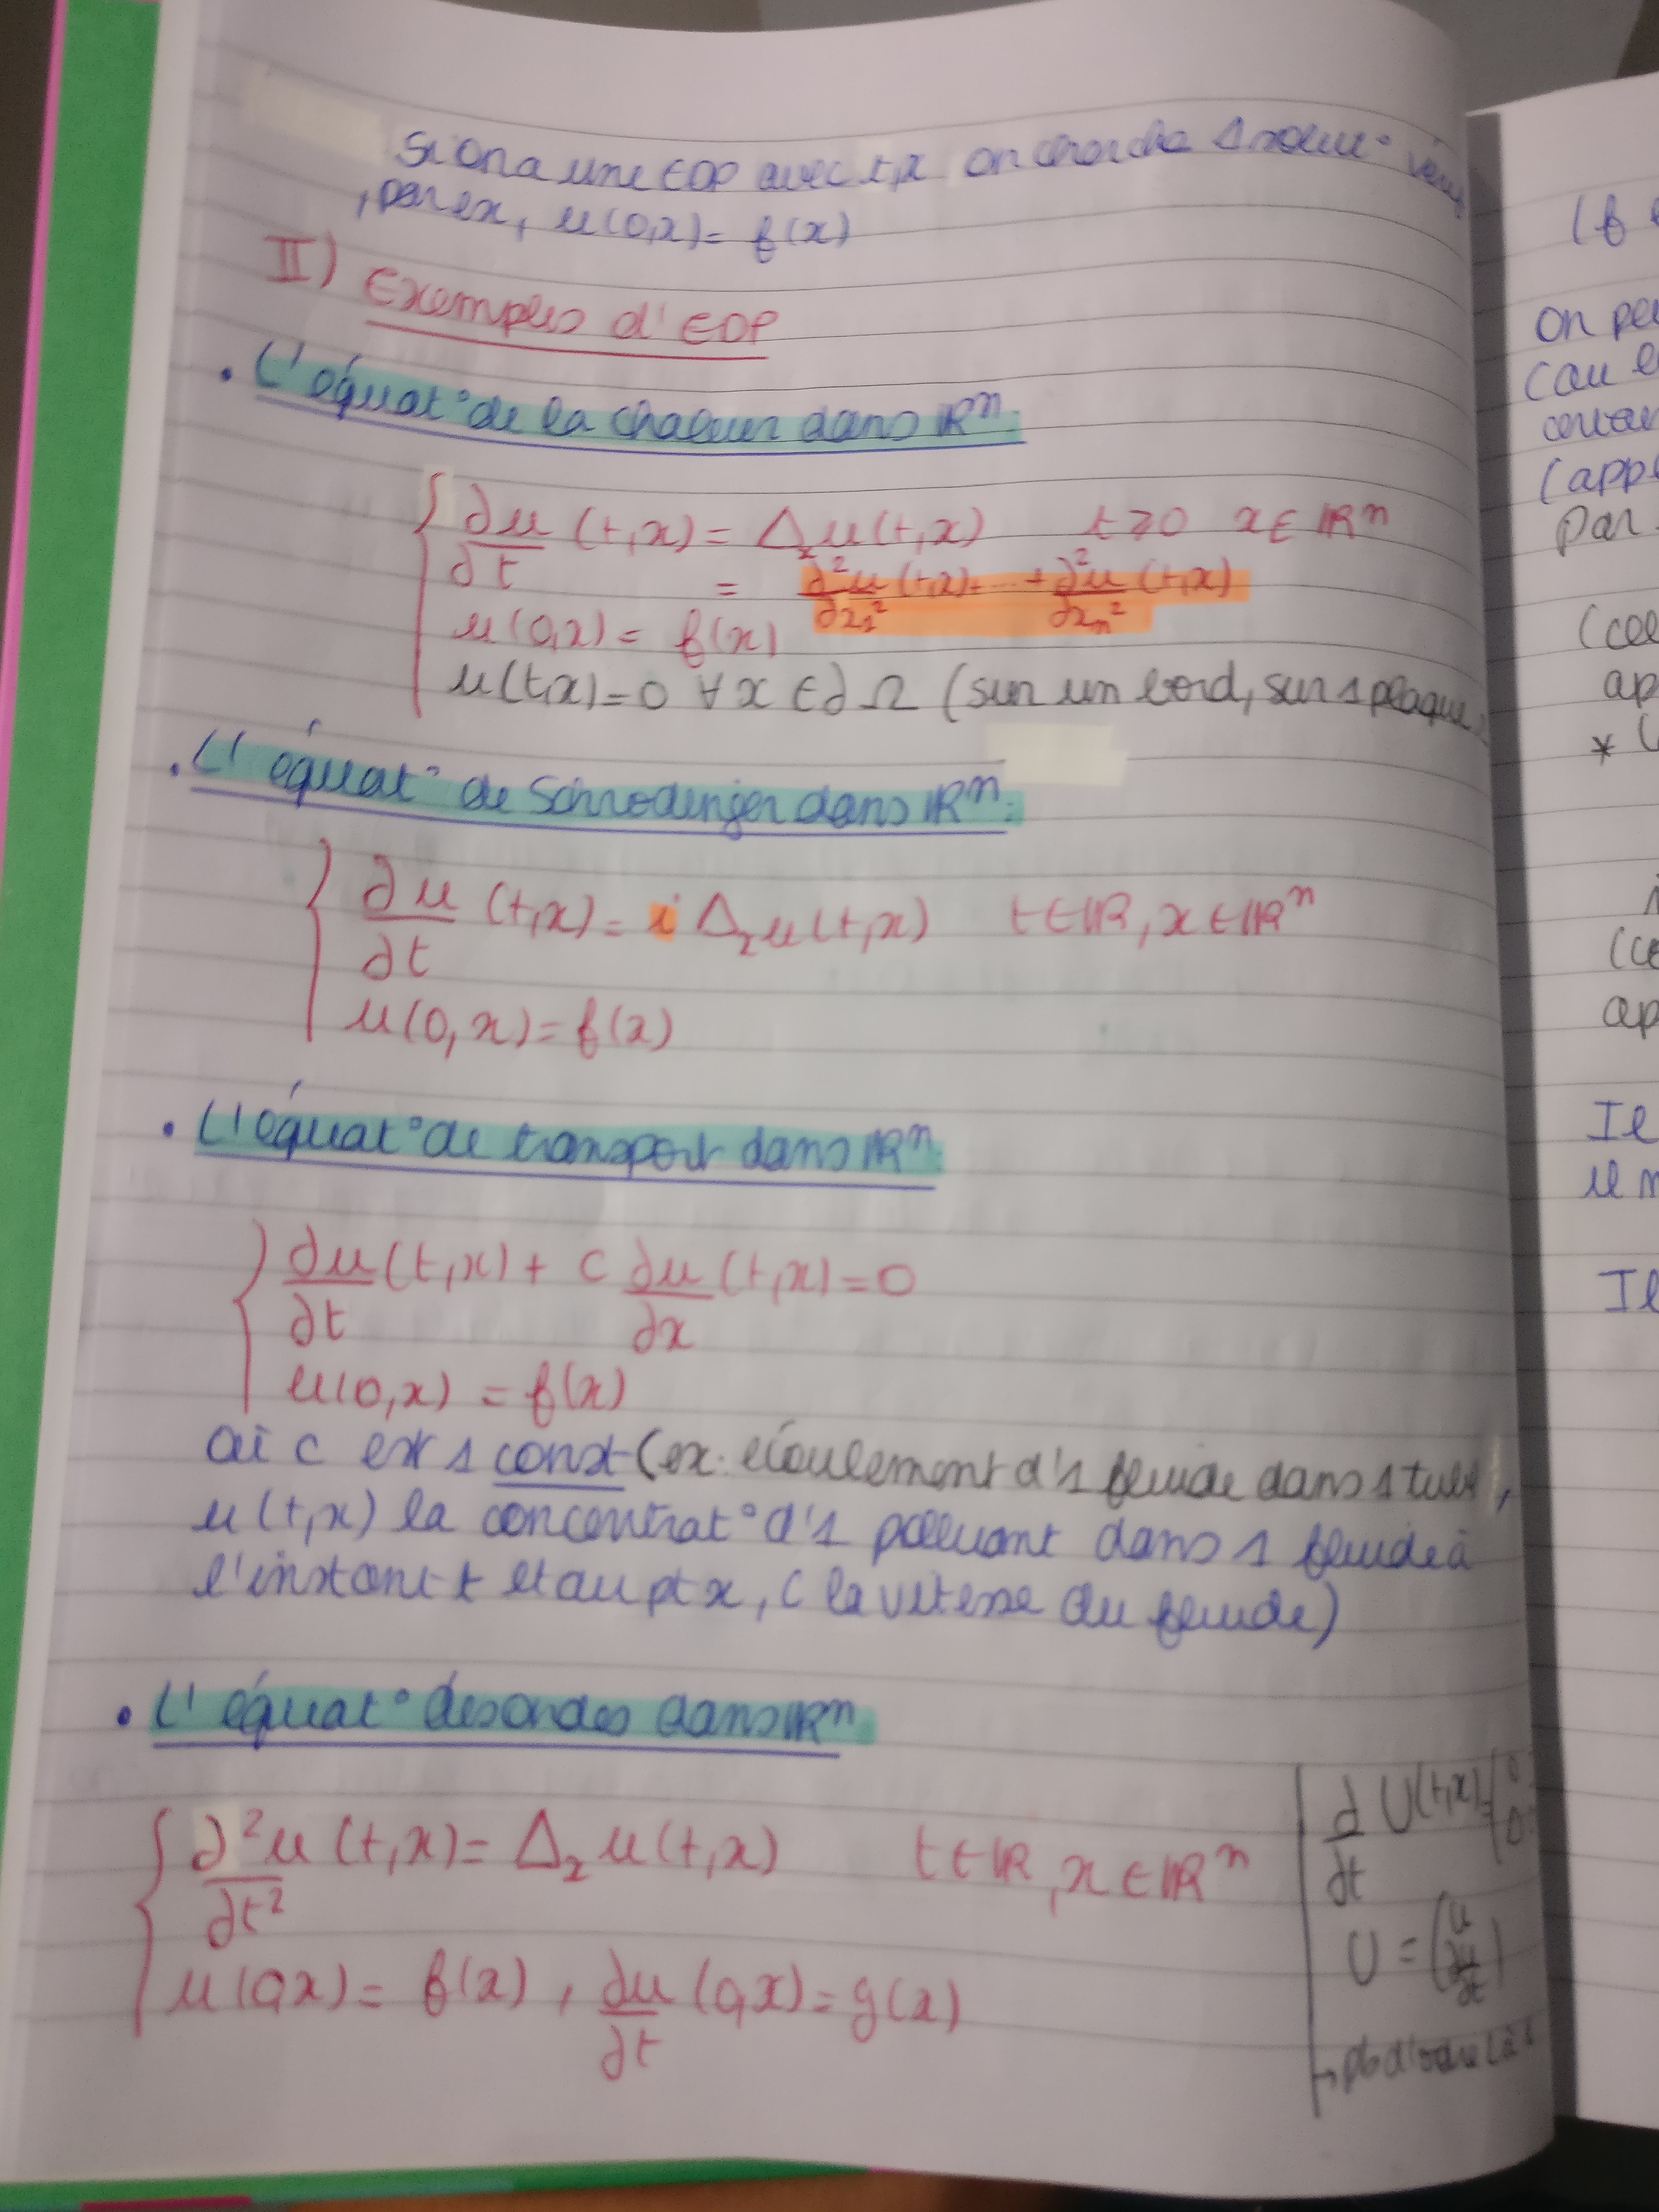 Si on a une EDP avec t,x on cherche 1 solu°
, par ex, u(0,x) = f(x)
II) Exemples d'EDP
• L'équat° de la chaleur dans ℝⁿ:
∂u/∂t (t,x) = Δₓu(t,x) t ≥ 0 x ∈ ℝⁿ
= ∂²u/∂x₁² (t,x) + ... + ∂²u/∂xₙ² (t,x)
u(0,x) = f(x)
u(t,x) = 0 ∀x ∈ ∂Ω (sur un bord, sur 1 plaque
• L'équat° de Schrodinger dans ℝⁿ:
∂u/∂t (t,x) = i Δₓu(t,x) t ∈ ℝ, x ∈ ℝⁿ
u(0,x) = f(x)
• L'équat° de transport dans ℝⁿ
∂u/∂t (t,x) + c ∂u/∂x (t,x) = 0
u(0,x) = f(x)
où c est 1 const (ex: écoulement d'1 fluide dans 1 tube,
u(t,x) la concentrat° d'1 polluant dans 1 fluide à
l'instant t et au pt x, c la vitesse du fluide)
• L'équat° des ondes dans ℝⁿ
∂²u/∂t² (t,x) = Δₓu(t,x) t ∈ ℝ, x ∈ ℝⁿ
u(0,x) = f(x), ∂u/∂t (0,x) = g(x)
d/dt U(t,x) = (0
0
U = (u
∂u/∂t)
→ pb d'ordre 1 à
(f
On peu
(au
(app
Par
ap
* L
i
ap
Il
u n
Il